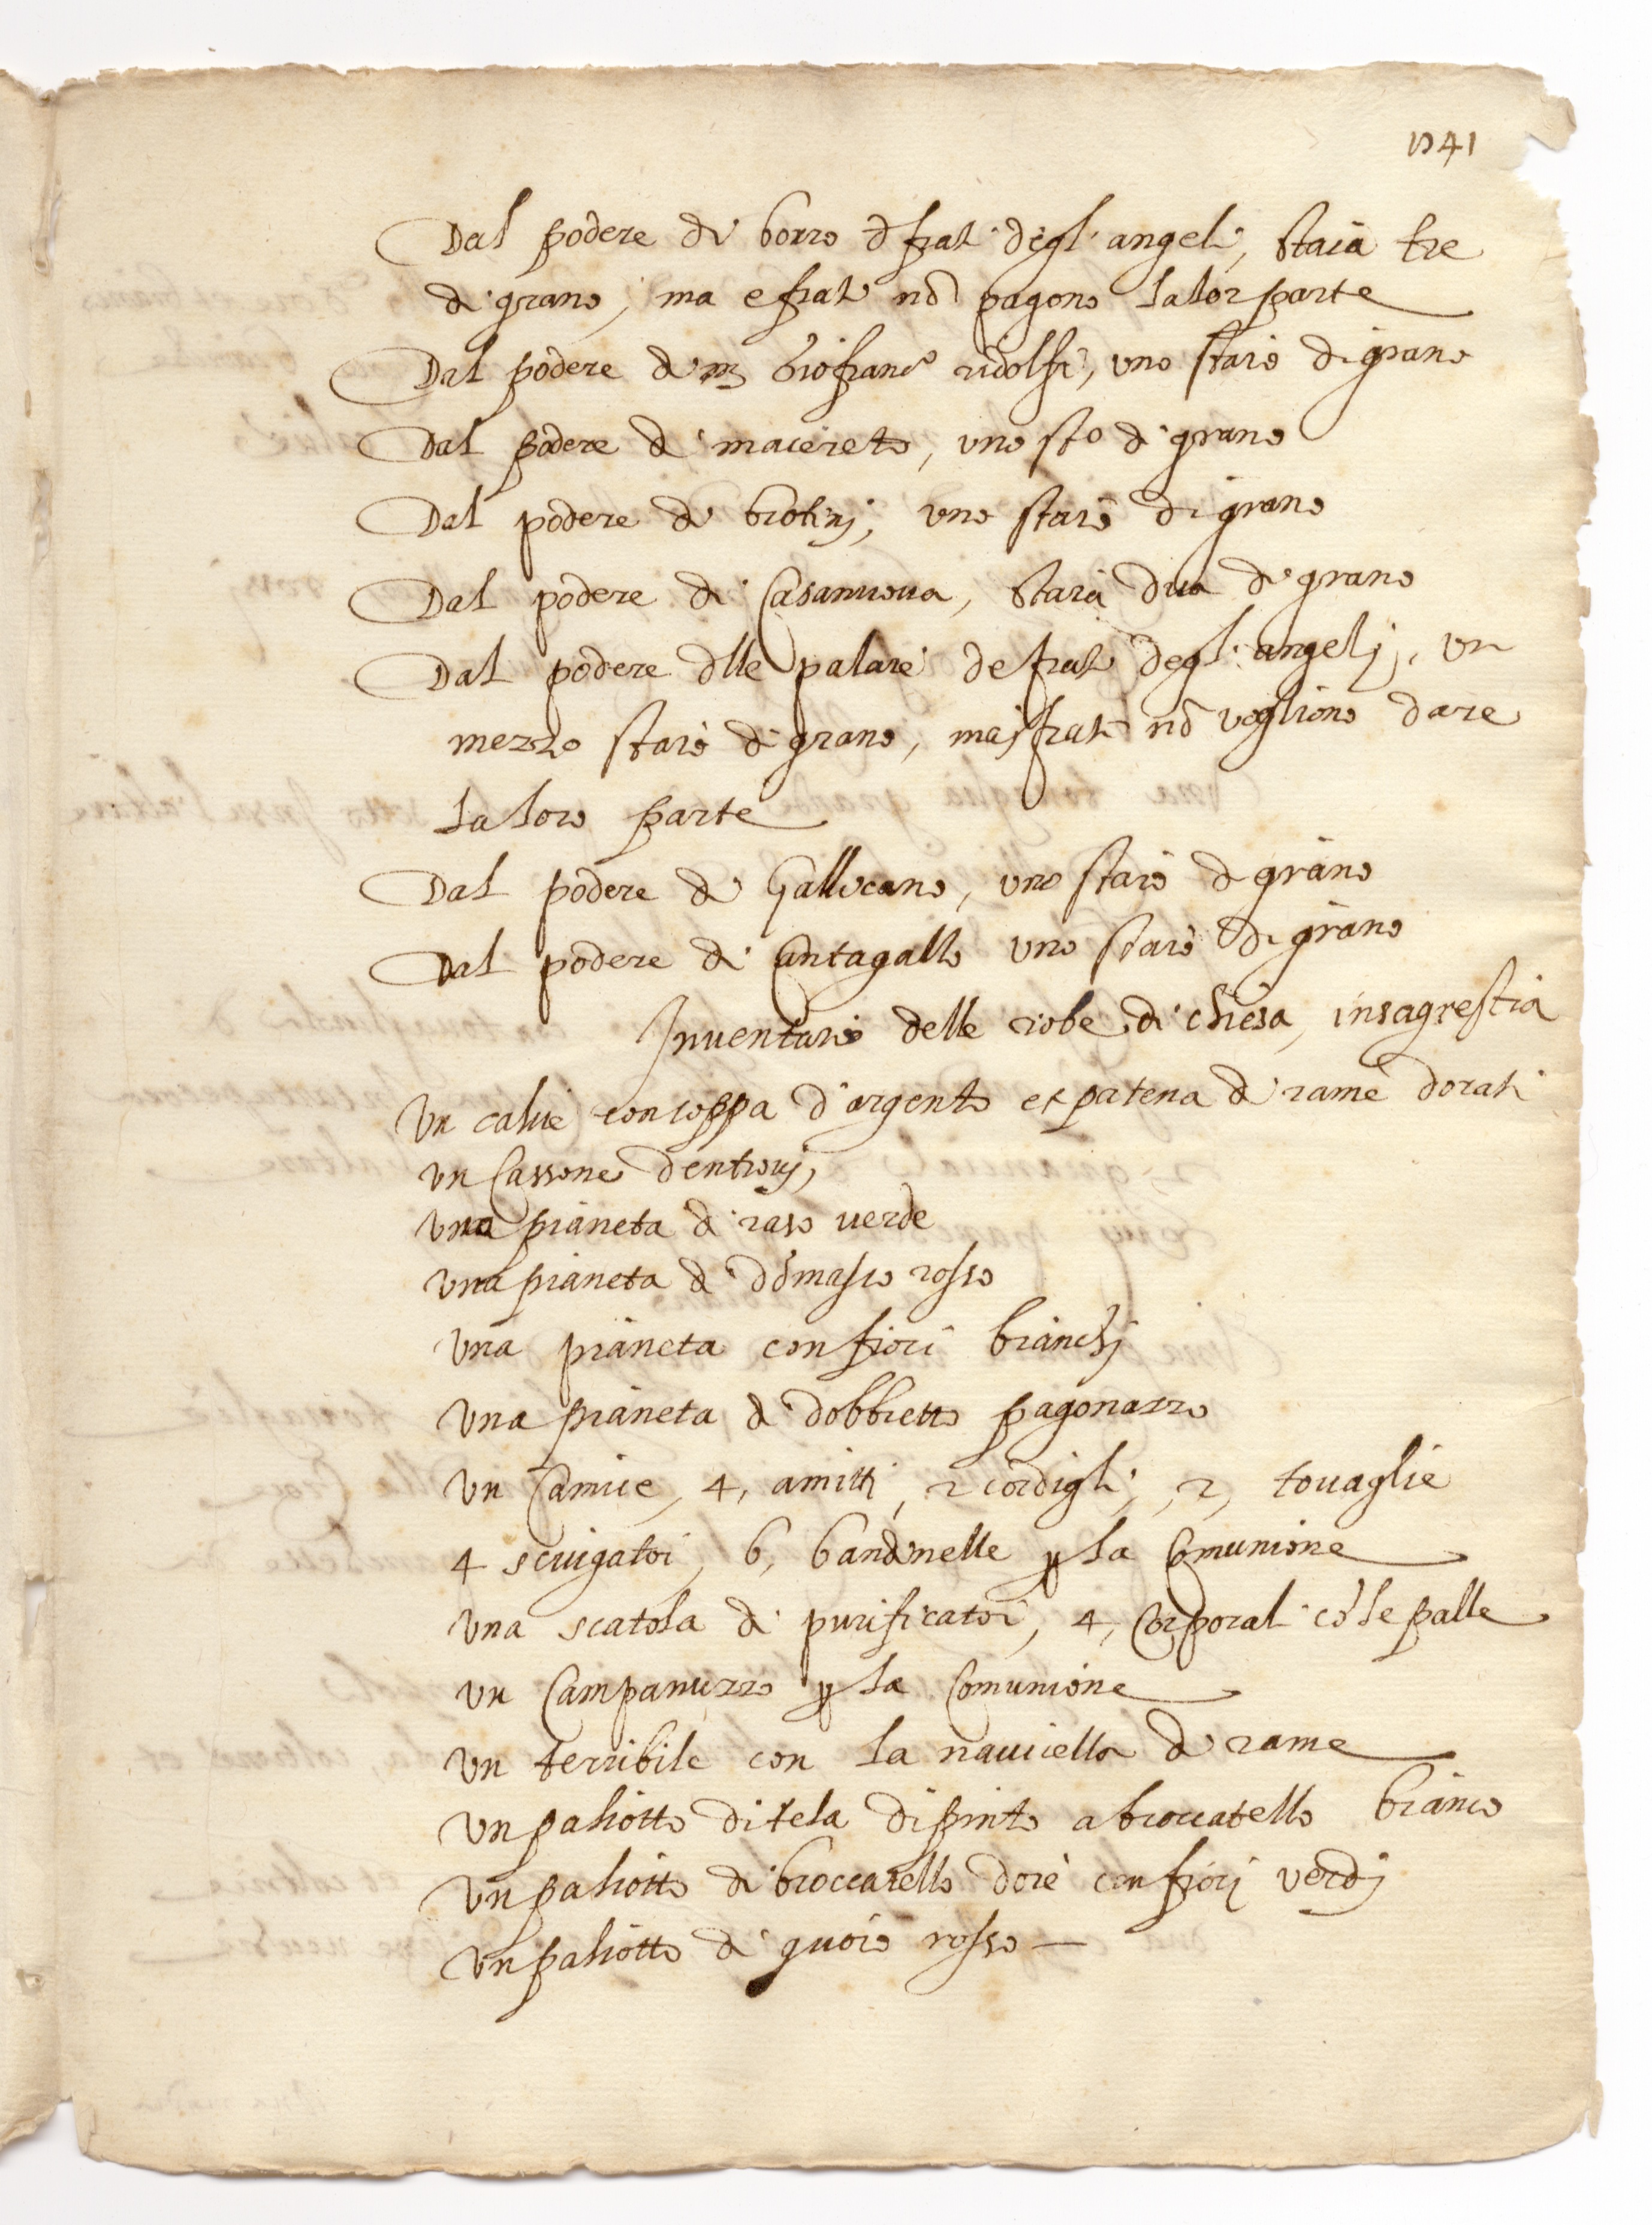 1541
Dal podere di borro d frati degl'angeli, staia tre
di grano, ma e frati nō pagono la lor parte
Dal podere di m Giofranco ridolfi, uno staio di grano
Dal podere di macereto, uno sto di grano
Dal podere di, uno staio di grano
Dal podere di Casanuova, staia dua di grano
Dal podere dlle palaie de frati degl'angelj, un
mezzo staio di grano, ma j frati nō vogliono dare
la loro parte
Dal podere di Gallicano, uno staio di grano
Dal podere di Cantagallo uno staio di grano
Inventario delle robe di chiesa, in sagrestia
Un calice con coppa d'argento et patena di rame dorati
un Cassone dentrovj,
una pianeta di raso verde
una pianeta di domasco rosso
una pianeta con fiori bianchj
una pianeta di dobbretto pagonazzo
un Camice, 4, amitti, 2 cordigli, 2, tovaglie
4 sciugatoi, 6, bandinelle p la Comunione
una scatola di purificatoi, 4, Corporali cō le palle
un Campanuzzo p la Comunione
un terribile con la navicella di rame
un paliotto di tela dipinto a broccatello bianco
un paliotto di broccatello dorè con fiorj verdj
un paliotto di quoio rosso —